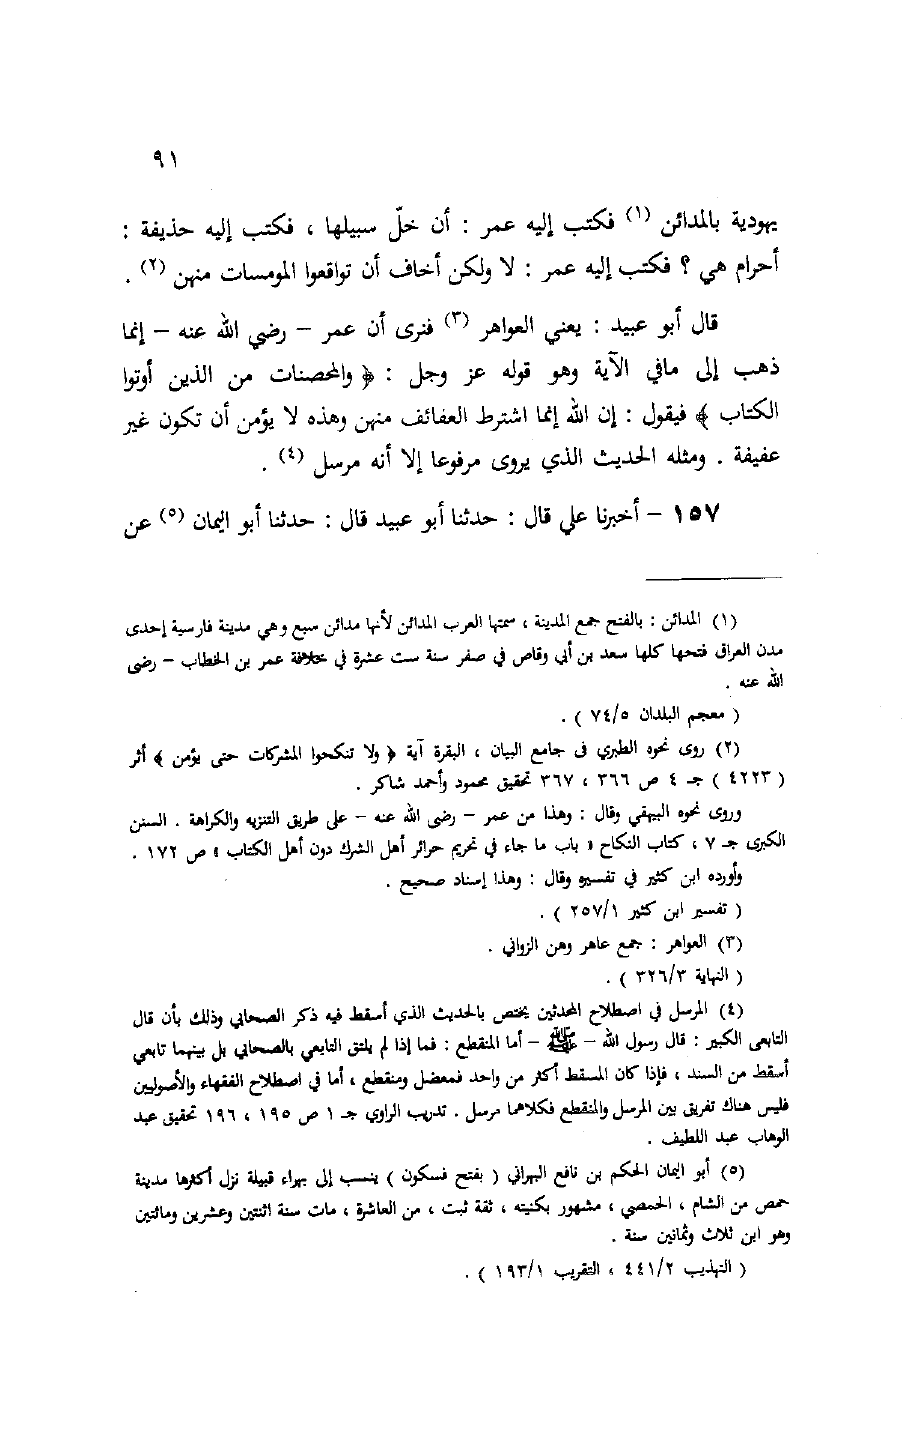 ٩١
يهودية بالمدائن (١) فكتب إليه عمر : أن خلّ سبيلها ، فكتب إليه حذيفة :
أحرام هي ؟ فكتب إليه عمر : لا ولكن أخاف أن تواقعوا المومسات منهن (٢) .
قال أبو عبيد : يعني العواهر (٣) فنرى أن عمر – رضي الله عنه – إنما
ذهب إلى مافي الآية وهو قوله عز وجل : ﴿ والمحصنات من الذين أوتوا
الكتاب ﴾ فيقول : إن الله إنما اشترط العفائف منهن وهذه لا يؤمن أن تكون غير
عفيفة . ومثله الحديث الذي يروى مرفوعا إلا أنه مرسل (٤) .
١٥٧ – أخبرنا علي قال : حدثنا أبو عبيد قال : حدثنا أبو اليمان (٥) عن
(١) المدائن : بالفتح جمع المدينة ، سمتها العرب المدائن لأنها مدائن سبع وهي مدينة فارسية إحدى
مدن العراق فتحها كلها سعد بن أبي وقاص في صفر سنة ست عشرة في خلافة عمر بن الخطاب – رضى
الله عنه .
( معجم البلدان ٧٤/٥ ) .
(٢) روى نحوه الطبري فى جامع البيان ، البقرة آية ﴿ ولا تنكحوا المشركات حتى يؤمن ﴾ أثر
( ٤٢٢٣ ) جـ ٤ ص ٣٦٦ ، ٣٦٧ تحقيق محمود وأحمد شاكر .
وروى نحوه البيهقي وقال : وهذا من عمر – رضى الله عنه – على طريق التنزيه والكراهة . السنن
الكبرى جـ ٧ ، كتاب النكاح « باب ما جاء في تحريم حرائر أهل الشرك دون أهل الكتاب » ص ١٧٢ .
وأورده ابن كثير في تفسيره وقال : وهذا إسناد صحيح .
( تفسير ابن كثير ٢٥٧/١ ) .
(٣) العواهر : جمع عاهر وهن الزواني .
( النهاية ٣٢٦/٣ ) .
(٤) المرسل في اصطلاح المحدثين يختص بالحديث الذي أسقط فيه ذكر الصحابي وذلك بأن قال
التابعى الكبير : قال رسول الله – ﷺ – أما المنقطع : فما إذا لم يلتق التابعي بالصحابي بل بينهما تابعي
أسقط من السند ، فإذا كان المسقط أكثر من واحد فمعضل ومنقطع ، أما في اصطلاح الفقهاء والأصوليين
فليس هناك تفريق بين المرسل والمنقطع فكلاهما مرسل . تدريب الراوي جـ ١ ص ١٩٥ ، ١٩٦ تحقيق عبد
الوهاب عبد اللطيف .
(٥) أبو اليمان الحكم بن نافع البهراني ( بفتح فسكون ) ينسب إلى بهراء قبيلة نزل أكثرها مدينة
حمص من الشام ، الحمصي ، مشهور بكنيته ، ثقة ثبت ، من العاشرة ، مات سنة اثنتين وعشرين ومائتين
وهو ابن ثلاث وثمانين سنة .
( التهذيب ٤٤١/٢ ، التقريب ١٩٣/١ ) .